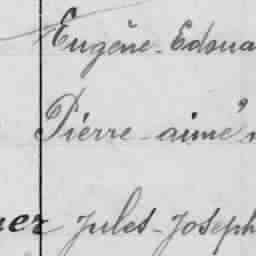 Eugène-Edoua
Pierre-aimé
ner Jules-Joseph